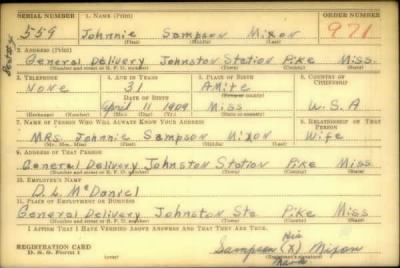 SERIAL NUMBER 1. NAME (Print) ORDER NUMBER
559 Johnnie Sampson Mixon 971
(First) (Middle) (Last)
2. ADDRESS (Print)
General Delivery Johnston Station Pike Miss.
(Number and street or R. F. D. number) (Town) (County) (State)
3. TELEPHONE 4. AGE IN YEARS 5. PLACE OF BIRTH 6. COUNTRY OF CITIZENSHIP
None 31 Amite
DATE OF BIRTH (Town or county)
April 11 1909 Miss U.S.A
(Exchange) (Number) (Mo.) (Day) (Yr.) (State or country)
7. NAME OF PERSON WHO WILL ALWAYS KNOW YOUR ADDRESS 8. RELATIONSHIP OF THAT PERSON
MRS. Johnnie Sampson Mixon Wife
(Mr., Mrs., Miss) (First) (Middle) (Last)
9. ADDRESS OF THAT PERSON
General Delivery Johnston Station Pike Miss.
(Number and street or R. F. D. number) (Town) (County) (State)
10. EMPLOYER'S NAME
D. L. McDaniel
11. PLACE OF EMPLOYMENT OR BUSINESS
General Delivery Johnston Sta. Pike Miss
(Number and street or R. F. D. number) (Town) (County) (State)
I AFFIRM THAT I HAVE VERIFIED ABOVE ANSWERS AND THAT THEY ARE TRUE.
His
REGISTRATION CARD Sampson (X) Mixon
D. S. S. Form 1 (over) (Registrant's signature)
Mark